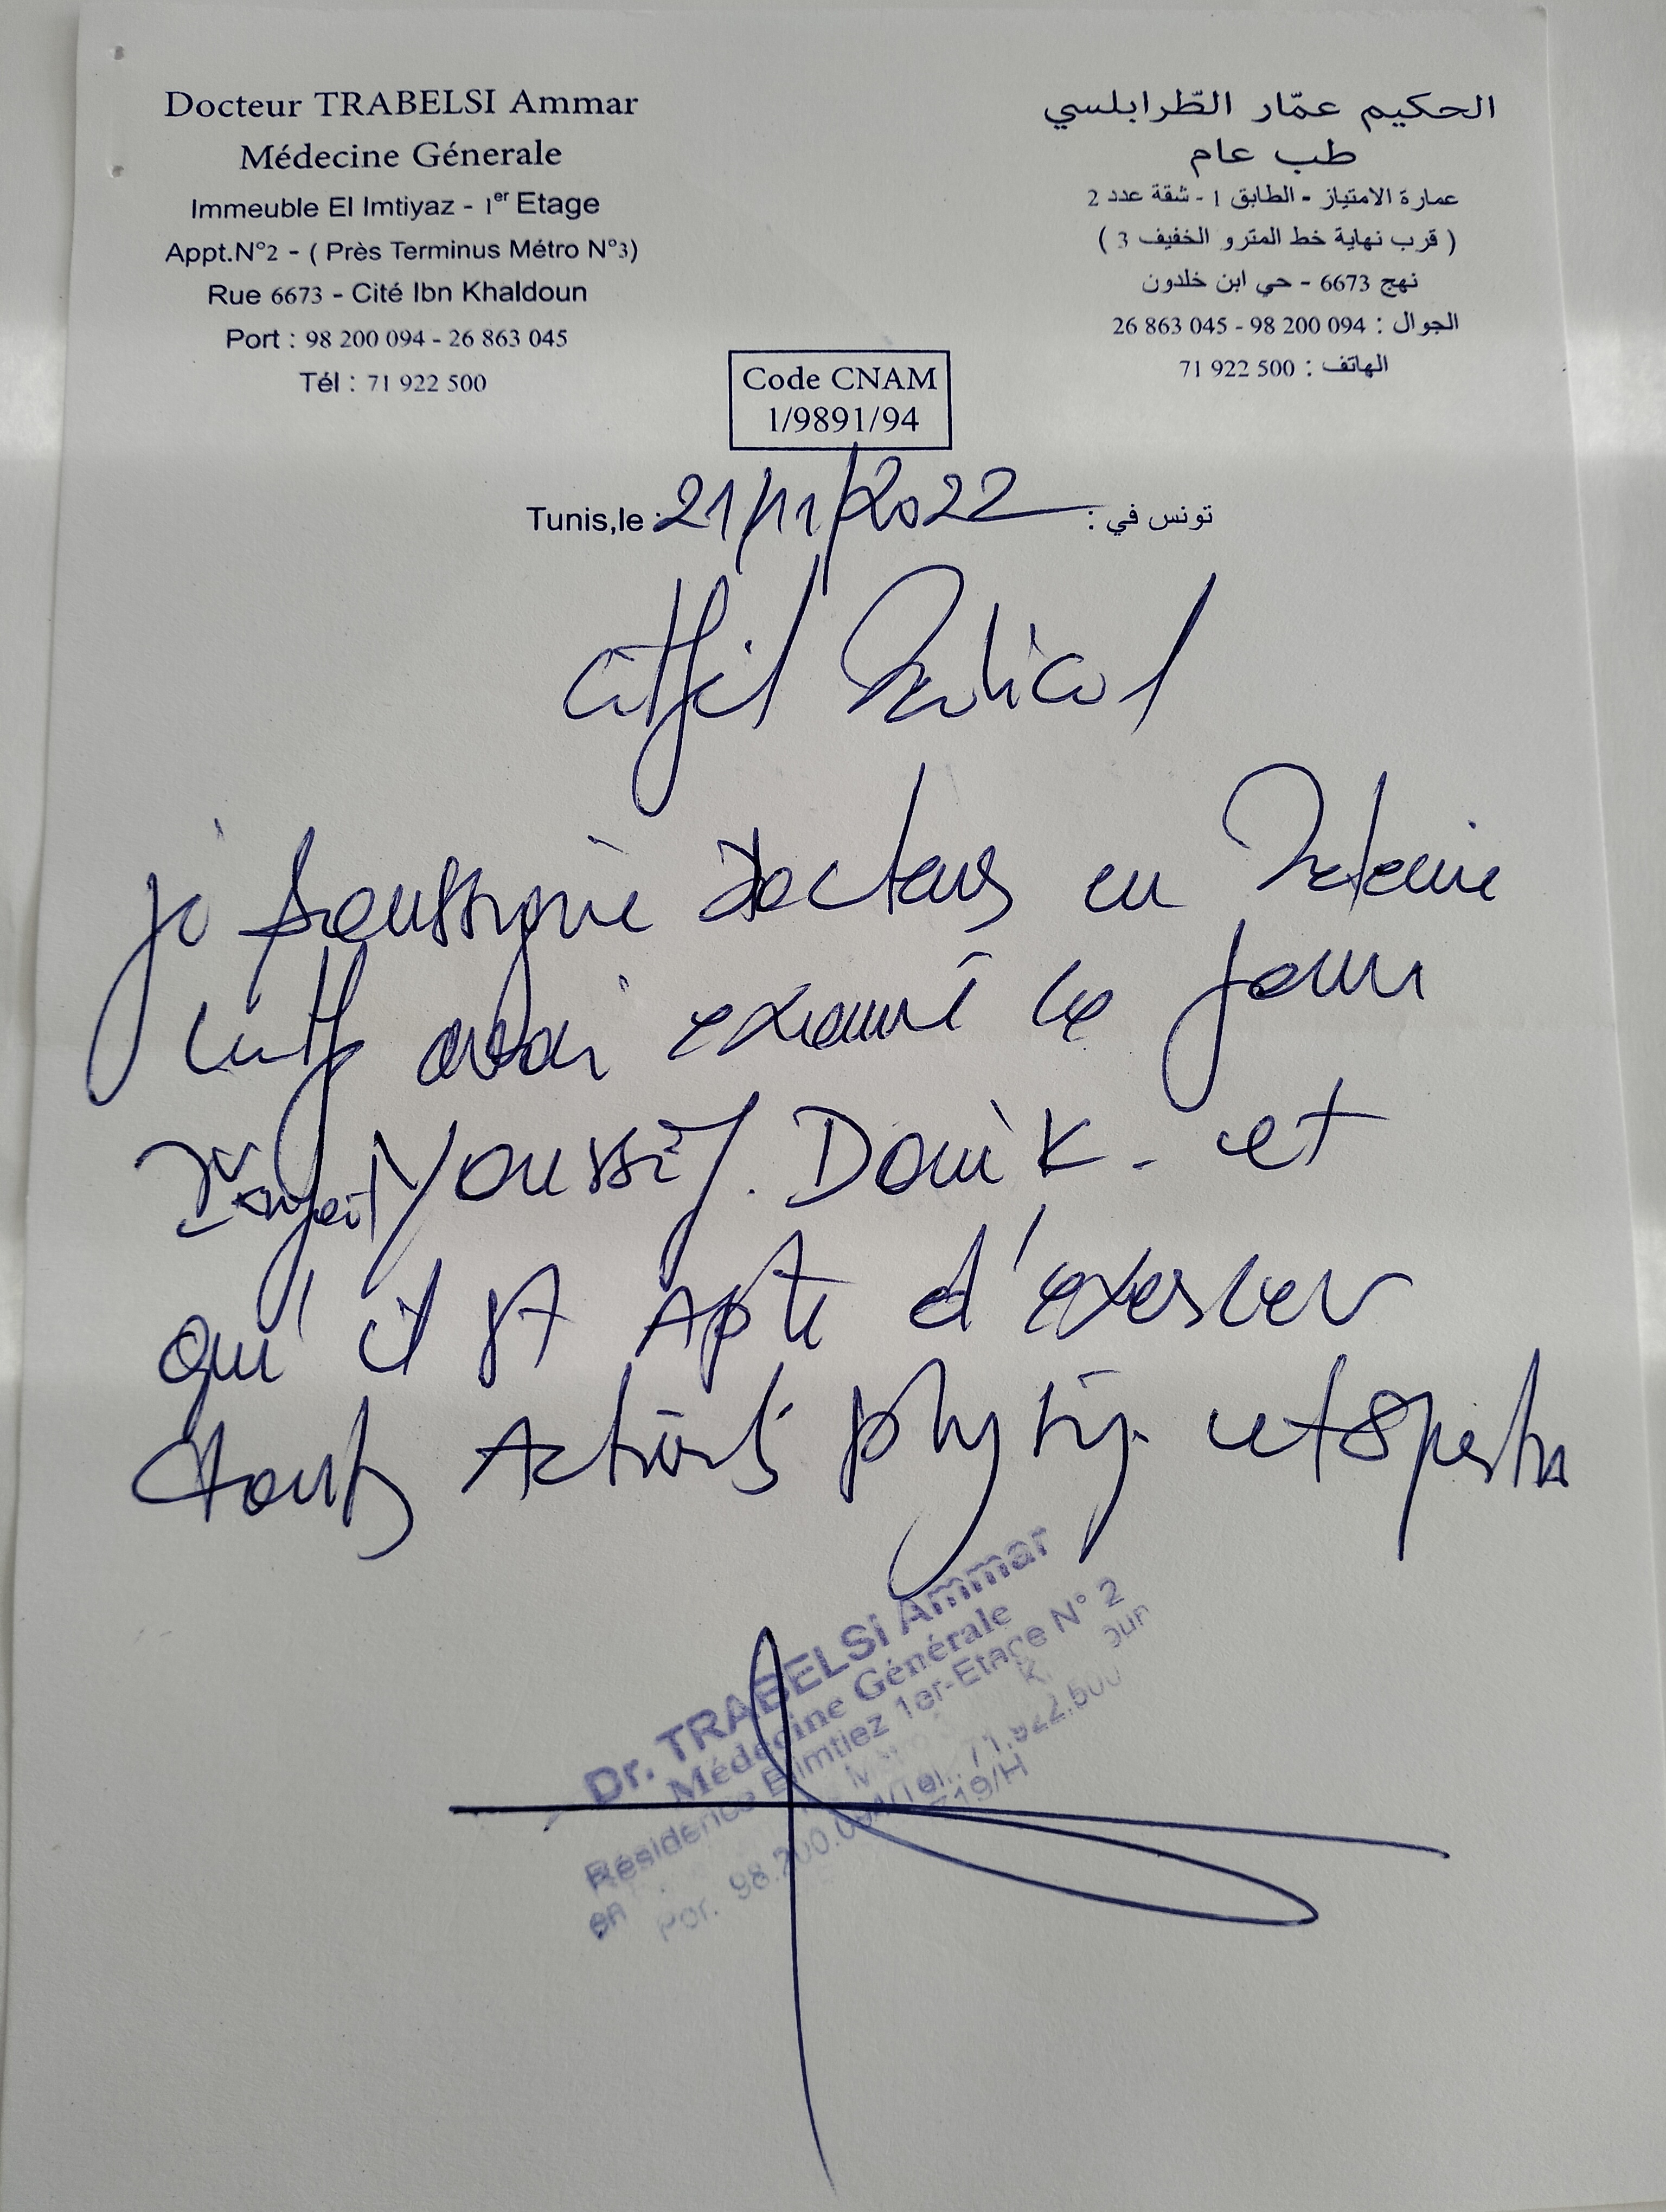 Docteur TRABELSI Ammar
Médecine Génerale
Immeuble El Imtiyaz - 1er Etage
Appt.N°2 - ( Près Terminus Métro N°3)
Rue 6673 - Cité Ibn Khaldoun
Port : 98 200 094 - 26 863 045
Tél : 71 922 500
الحكيم عمّار الطّرابلسي
طب عام
عمارة الامتياز - الطابق 1 - شقة عدد 2
( قرب نهاية خط المترو الخفيف 3 )
نهج 6673 - حي ابن خلدون
الجوال : 094 200 98 - 045 863 26
الهاتف : 500 922 71
Code CNAM
1/9891/94
Tunis,le : 21/11/2022 تونس في :
Médical
je soussigné Docteur en Médecine
avoir examiné ce jour
Youssef. Douik - et
qu'il est Apte d'exercer
toute Activité physiq. et sportive
Dr. TRABELSi Ammar
Médecine Générale
Résidence Elimtiez 1er-Etage N° 2
Por. 98.200.094/Tel. 71.922.500